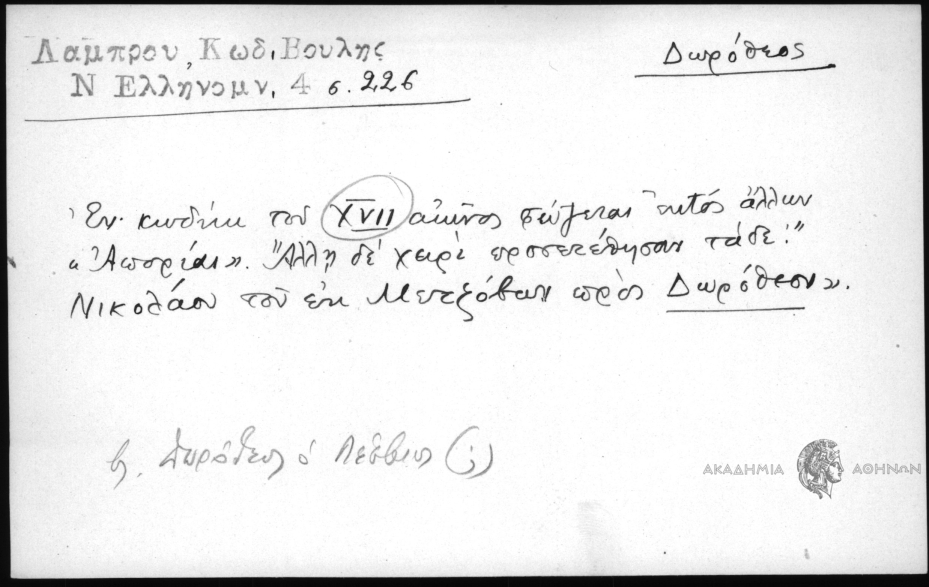 Λαμπρου, Κωδ. Βουλης
Δωρόθεος
Ν Ελληνομν, 4 σ. 226
Ἐν κώδικι τοῦ XVII αἰῶνος φέρεται ἐκτός ἄλλων
« Ἀπορίαι ». "Ἄλλῃ δέ χειρὶ προσετέθησαν τάδε:"
Νικολάου τοῦ ἐκ Μετζόβων πρὸς Δωρόθεον».
β. Δωρόθεος ὁ Λέσβιος (;)
ΑΚΑΔΗΜΙΑ ΑΘΗΝΩΝ